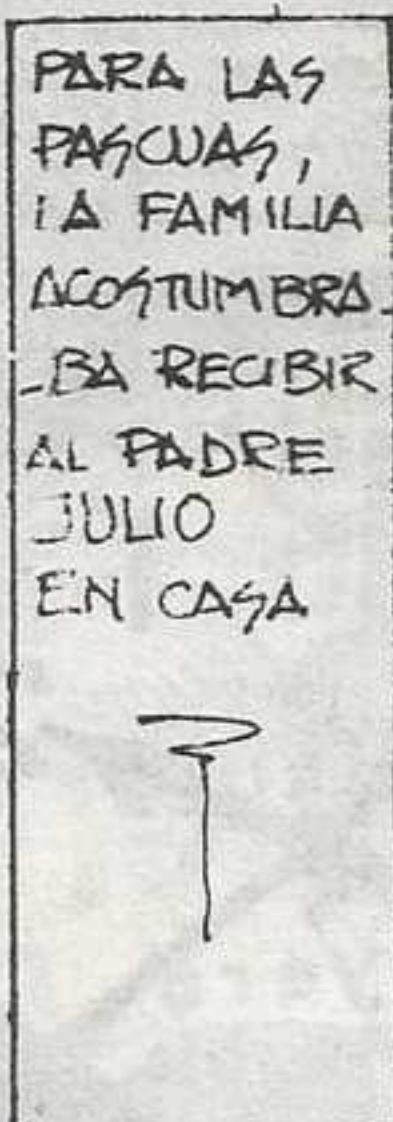 PARA LAS
PASCUAS,
LA FAMILIA
ACOSTUMBRA-
-BA RECIBIR
AL PADRE
JULIO
EN CASA